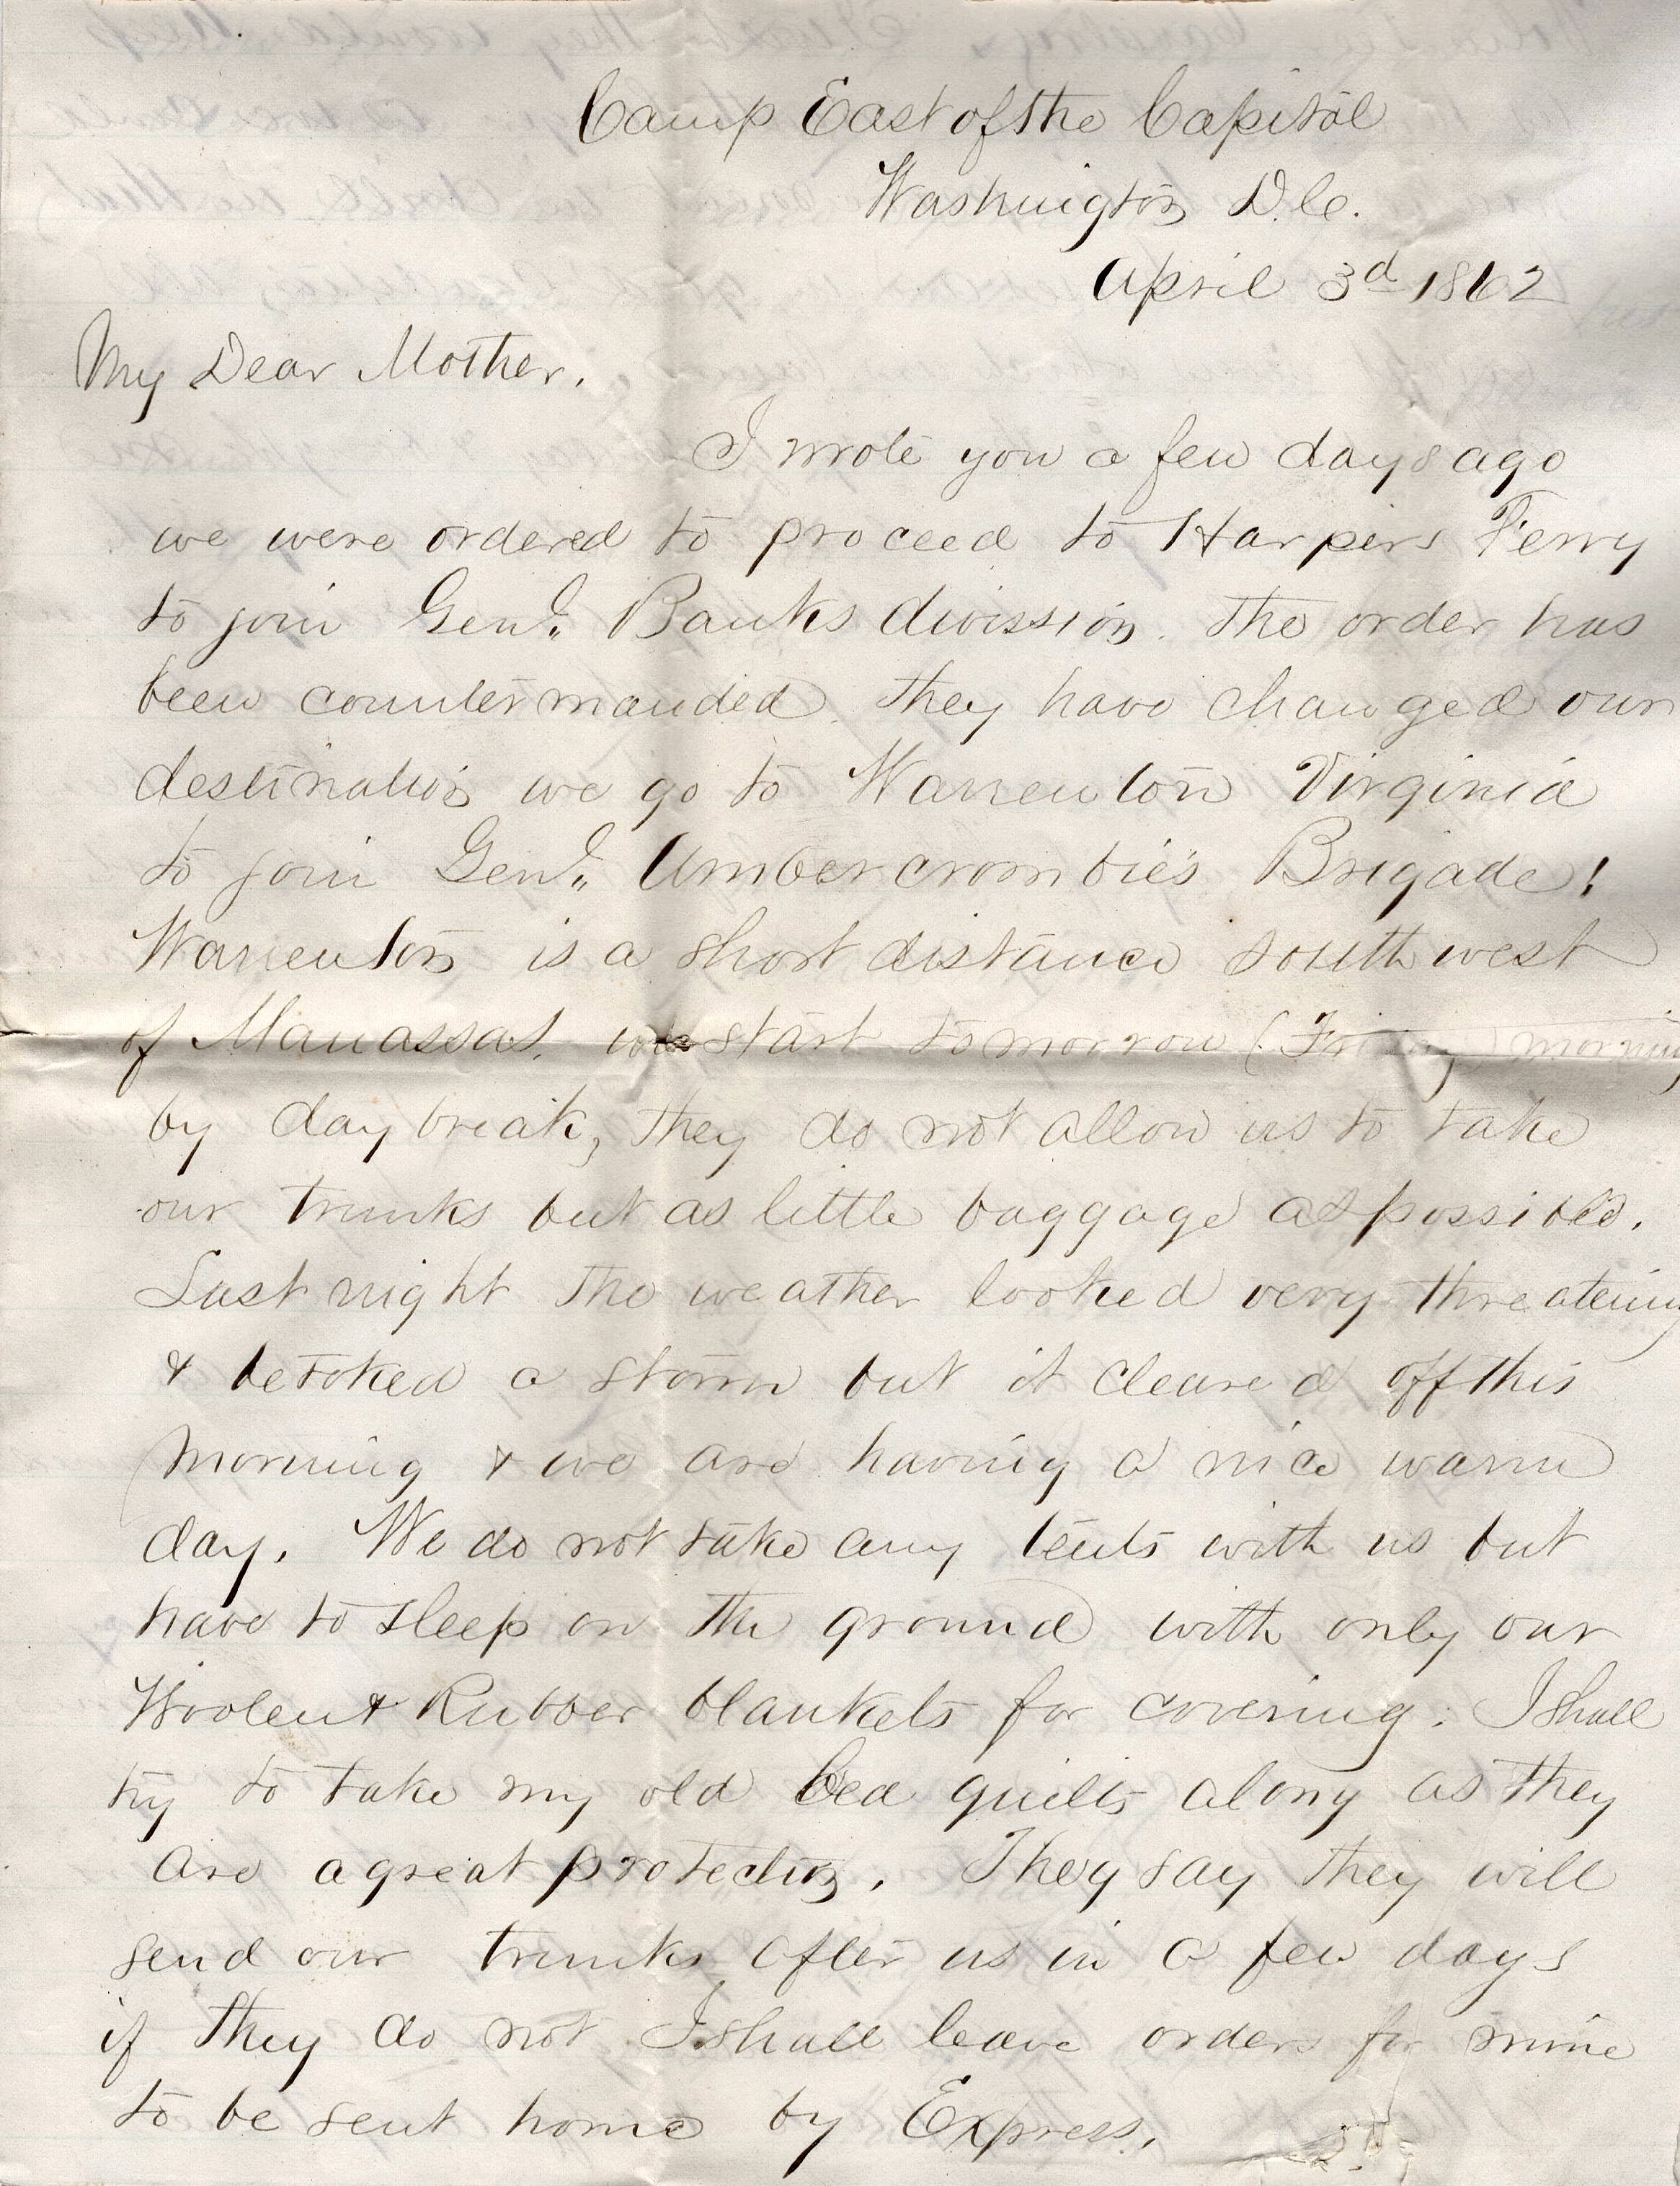 Camp East of the Capitol
Washington D.C.
April 3d 1862
My Dear Mother.
I wrote you a few days ago
we were ordered to proceed to Harpers Ferry
to join Genl. Banks divission. The order has
been countermanded. they have changed our
destination we go to Warrenton Virginia
to join Genl. Ambercrombie's Brigade!
Warrenton is a short distance south west
of Manassas. we start tomorrow (Friday) morning
by day break, they do not allow us to take
our trunks but as little baggage as possible.
Last night the weather looked very threatening
& betoked a storm but it cleared off this
morning & we are having a nice warm
day. We do not take any tents with us but
have to sleep on the ground with only our
Woolen & Rubber blankets for covering. I shall
try to take my old bed quilts along as they
are a great protection. They say they will
send our trunks after us in a few days
if they do not I shall leave orders for mine
to be sent home by Express.